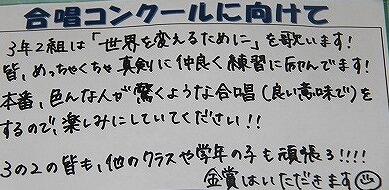 合唱コンクールに向けて
3年2組は「世界を変えるために」を歌います!
皆、めっちゃくちゃ真剣に仲良く練習に励んでます!
本番、色んな人が驚くような合唱(良い意味で)を
するので、楽しみにしていてください!!
3の2の皆も、他のクラスや学年の子も頑張ろ!!!!
金賞はいただきます